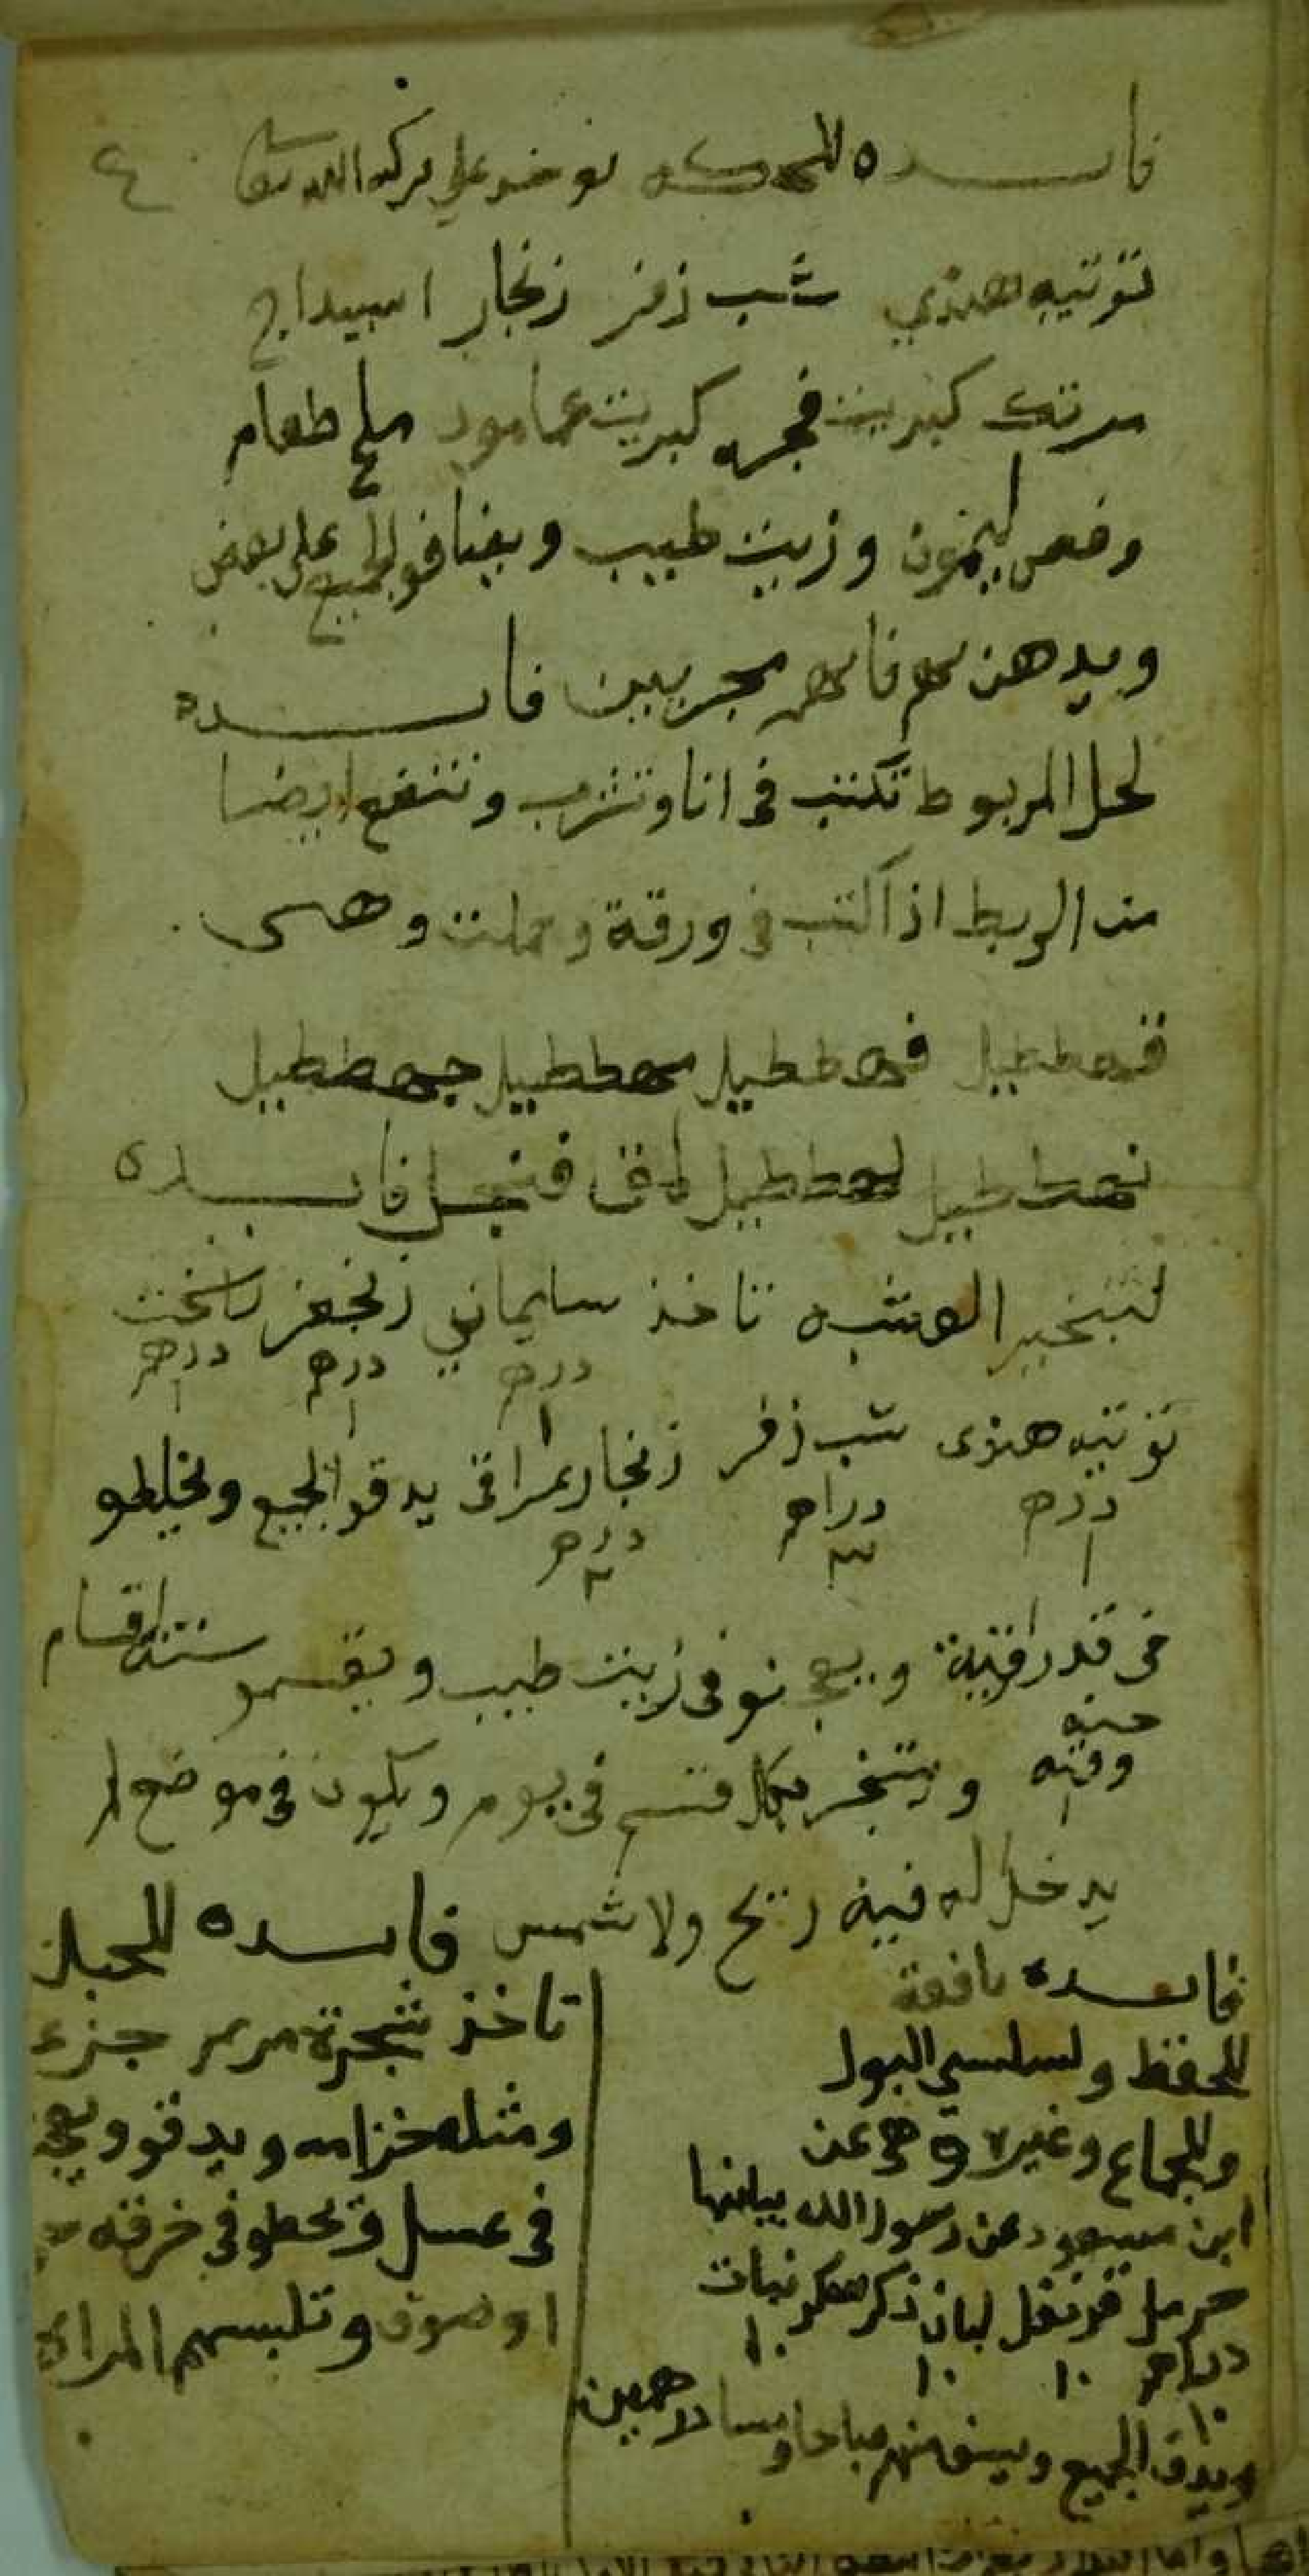 فايـــده للحكه توخد علي بركة الله تعالى ٤
توتيه هندي شب زفر زنجار اسبيداج
مرتك كبريت فجره كبريت عامود ملح طعام
وفص ليمون وزيت طيب ويضافو الجميع على بعض
ويدهن بهم فانهم مجربين فايـــده
لحل المربوط تكتب في انا وتشرب وتنفع ايضا
من الربط اذا كتب في ورقة وحملت وهى
فهططيل مهططيل جهططيل
نهططيل لهططيل فايـــده
لتبخير العشبه تاخذ سليماني زنجفر راسخت
درهم ١ درهم ١ درهم ١
توتيه هندى شب زفر زنجار عراقى يدقو الجميع ويخلطو
درهم ١ دراهم ٣ درهم ٢
فى قدر وقية ويعجنو في زيت طيب ويقسمو ستة اقسام
حنه وقيه ١
ويتبخر بكل قسم في يوم ويكون في موضع لم
يدخل له فيه ريح ولا شمس فايـــده للحبل
تاخذ شجرة مريم جزء
ومثله خزامه ويدقو ويعجنو
في عسل وتحطو في خرقه
او صوف وتلبسهم المراه
فايـــده نافعة
للحفظ ولسلس البول
وللجماع وغيره وهي عن
ابن مسعود عن رسول الله بيانها
حرمل قرنفل لبان ذكر سكر نبات
دراهم ١٠ ١٠ ١٠ ١٠
ويدق الجميع ويسف منهم صباحا ومسا درهمين